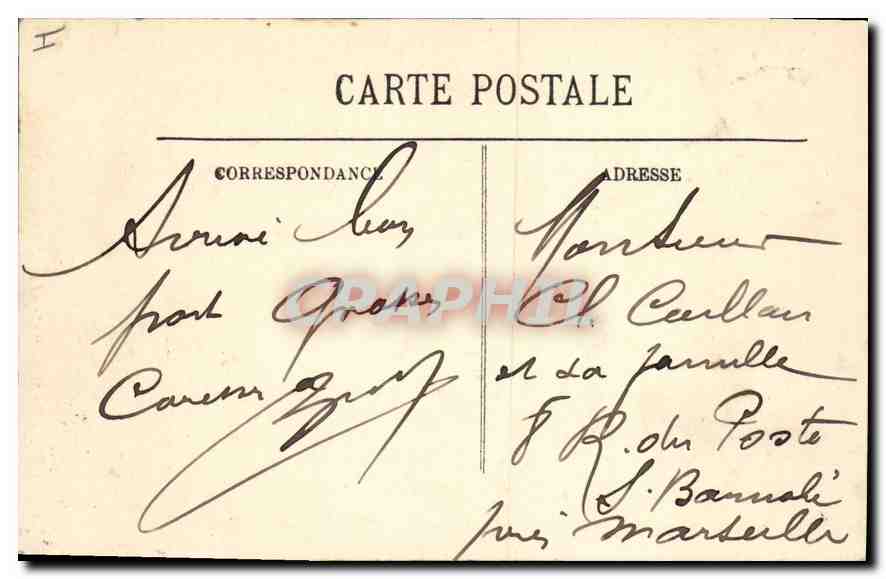 I
CARTE POSTALE
CORRESPONDANCE
Arrivé bon
port Grosses
Caresses
ADRESSE
Monsieur
Cl. Caillau
et sa famille
8 R. du Poste
S. Barnabé
près Marseille
CPAPHIL